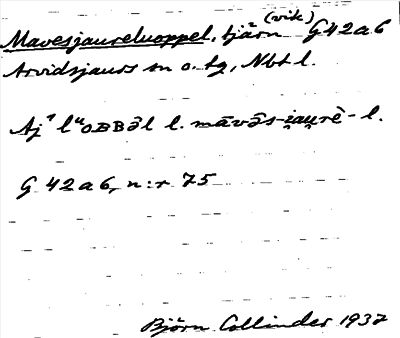 Mavesjaureluoppel, tjärn (vik) G42a6
Arvidsjaurs sn o. tg, Nbt l.
Aj⁷ lᵘOBBəl l. māvəs-jaurè- l.
G 42 a 6, n:r 75
Björn Collinder 1937